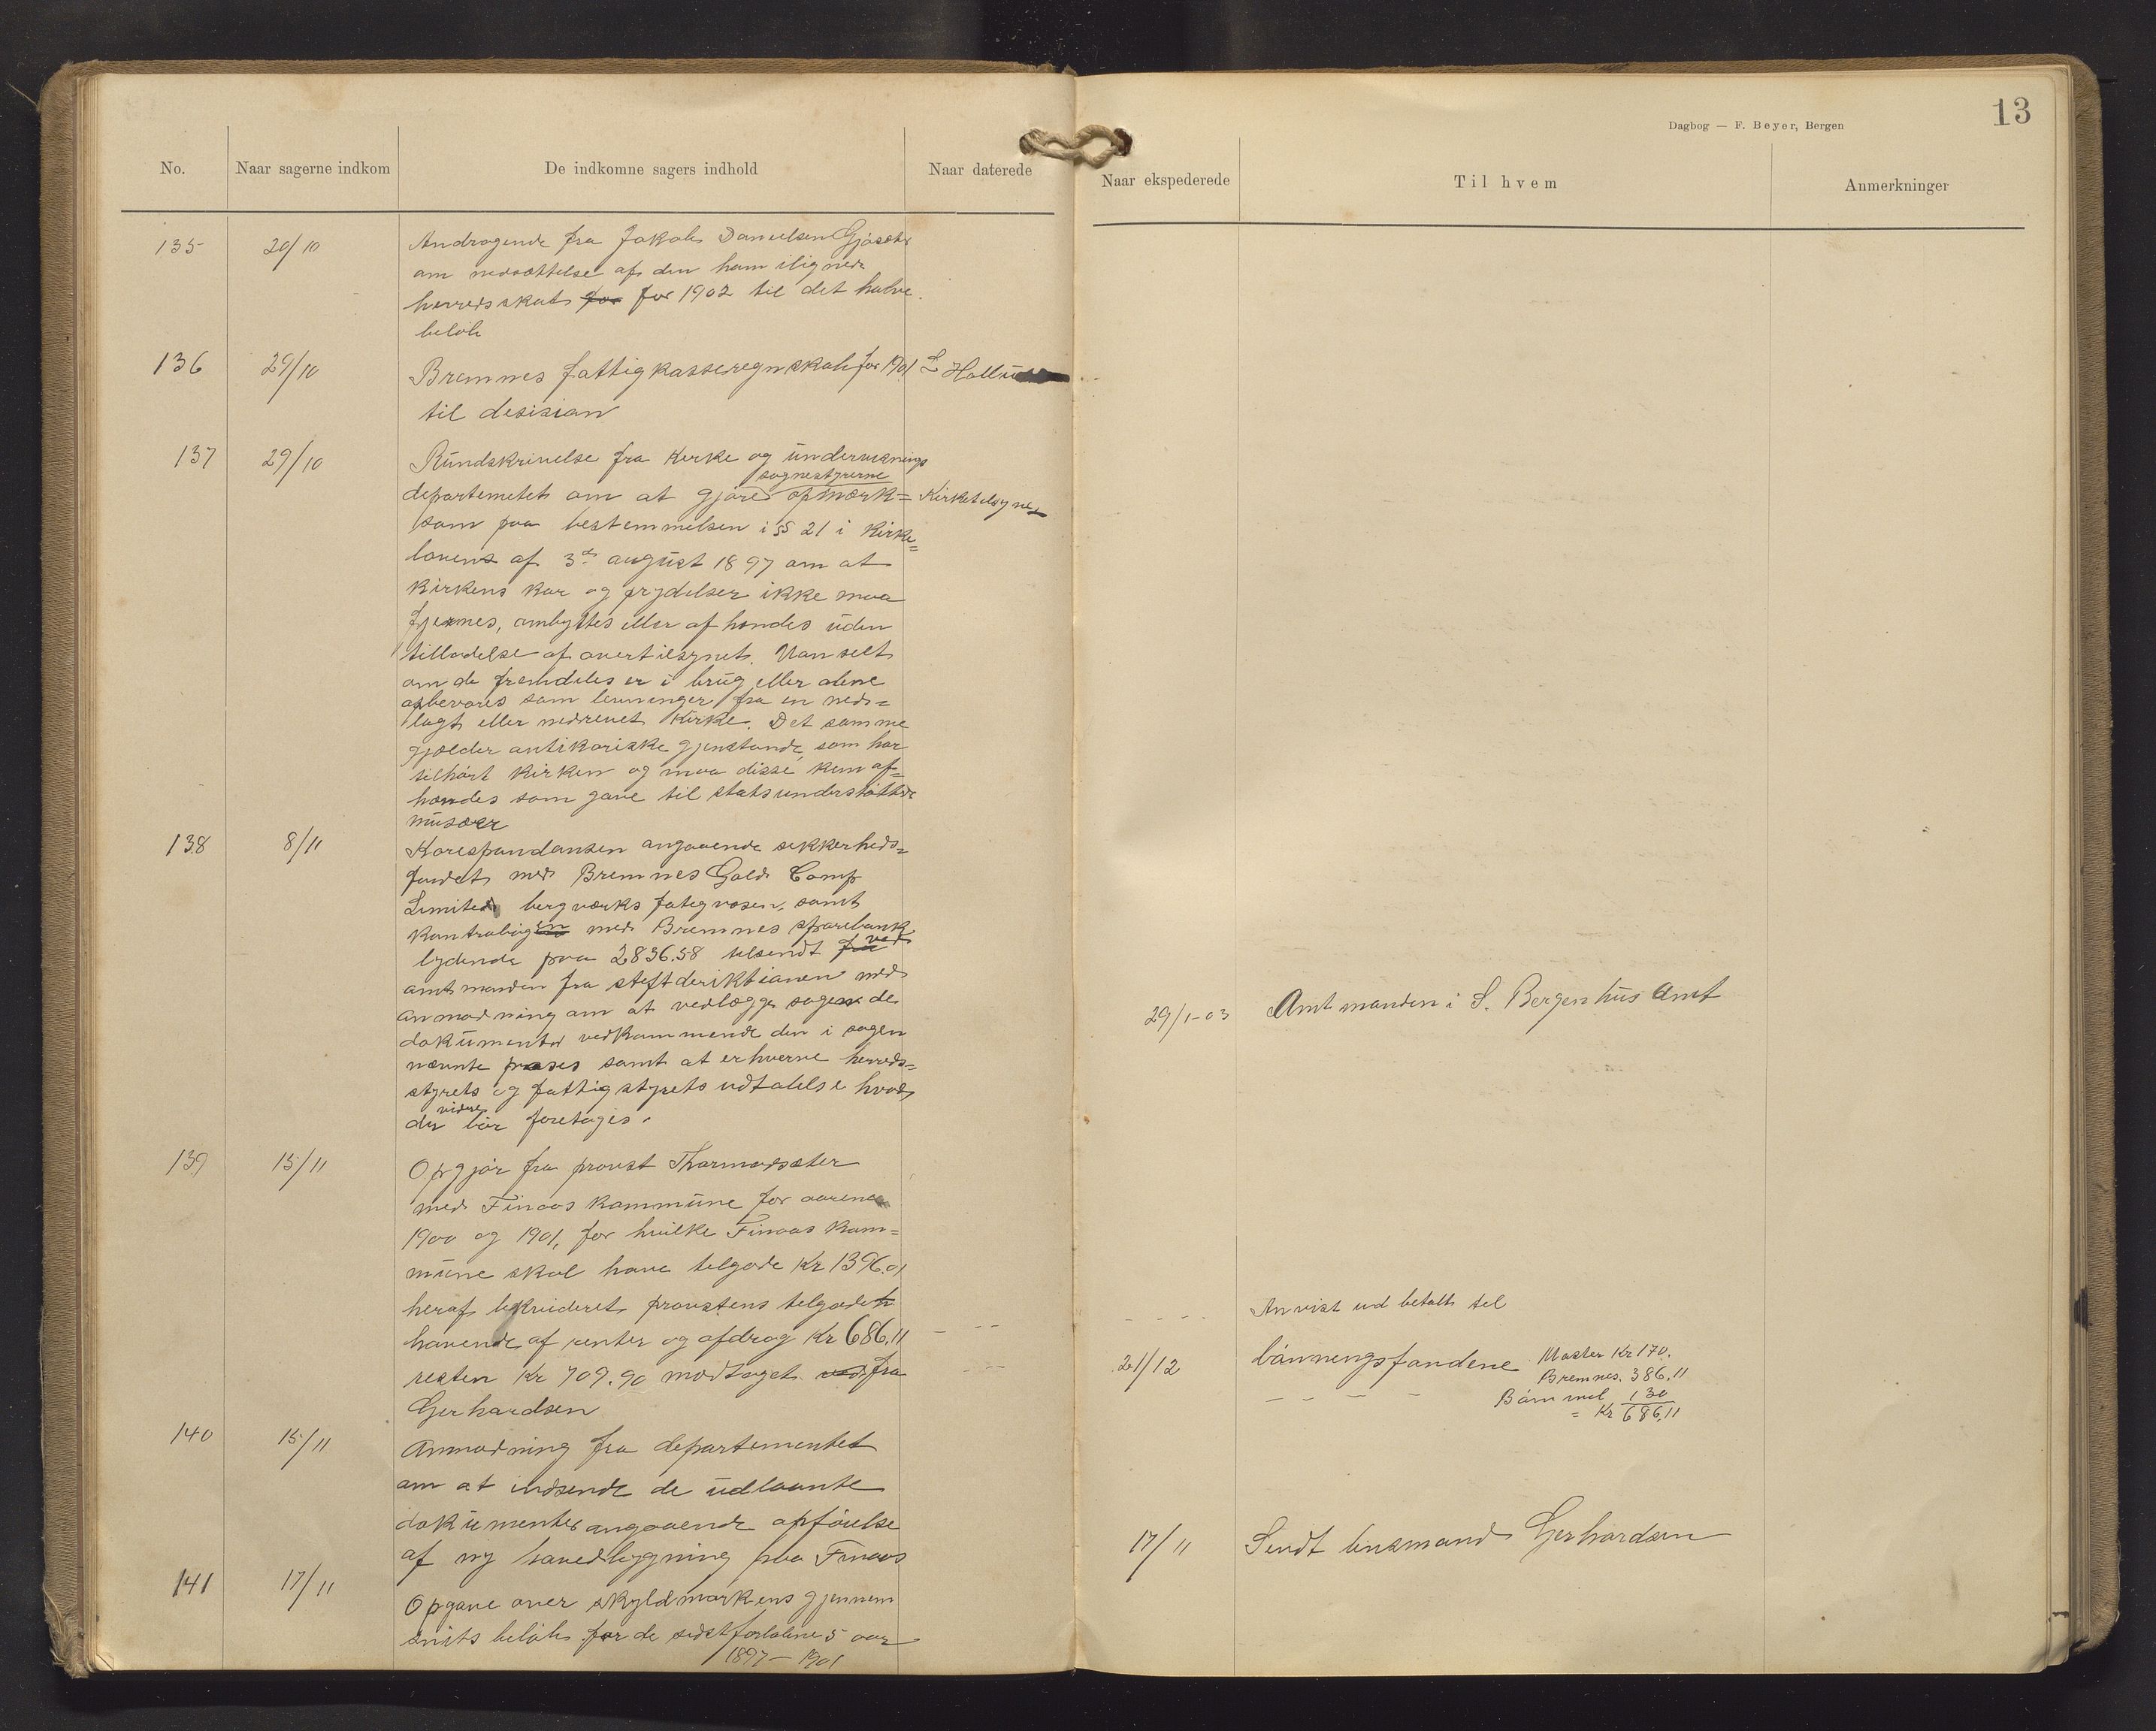 13
Dagbog — F. Beyer, Bergen
No.
Naar sagerne indkom
De indkomne sagers indhold
Naar daterede
Naar ekspederede
Til hvem
Anmerkninger
135 20/10 Andragende fra Jakob Danielsen
om nedsættelse af den ham ilignede
herredsskat for for 1902 til det halve
beløb
136 29/10 Bremnes fattigkasseregnskab for 1901
til desisian
137 29/10 Rundskrivelse fra Kirke og undervisnings
sognestyrerne
departemetet om at gjøre opmærk= Kirketilsynet
som paa bestemmelsen i § 21 i Kirke=
lovens af 3de august 1897 om at
Kirkens Kar og prydelser ikke maa
fjernes, ombyttes eller afhendes uden
tilladelse af overtilsynet. Uanseet
om de fremdeles er i brug eller alene
opbevares som levninger fra en ned=
lagt eller nedrevet Kirke. Det samme
gjælder antikvariske gjenstande, som har
tilhørt Kirken og maa disse kun af=
hændes som gave til statsunderstøttede
musæer
138 8/11 Korespondansen angaaende sikkerheds=
fondet med Bremnes Gold Comp
Limited bergværks fattigvæsen, samt
Kontrabogen med Bremnes sparebank
lydende paa 2836.58 tilsendt fra ved
amtmanden fra stiftderiktionen med
anmodning om at vedlægge sagen de
dokumenter vedkommende den i sagen
nævnte prases samt at erhverve herreds=
styrets og fattigstyrets udtalelse hvad
videre
der bør foretages.
29/1-03 Amtmanden i S. Bergenhus Amt
139 15/11 Opgjør fra provst Thormodsæter
med Finaas Kommune for aarene
1900 og 1901, for hvilke Finaas Kom=
mune skal have tilgode Kr 1396.01
heraf likvideret provstens tilgode
havende af renter og afdrag Kr 686.11
resten Kr 709.90 modtaget ved fra
Gerhardsen
Anvist ud betalt til
21/12 låvningsfondene Moster Kr 170.
Bremnes. 386.11
Bømmel 130
= Kr 686.11
140 15/11 Anmodning fra departementet
om at indsende de udlaante
dokumenter angaaende opførelse
af ny hovedbygning paa Finaas
17/11 Sendt lensmand Gerhardsen
141 17/11 Opgave over skyldmarkens gjennem
snits beløb for de sidst forløbne 5 aar
1897 — 1901